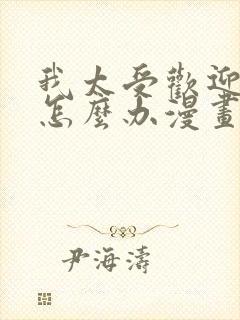 我太受歡迎
怎麼办漫畫
尹海濤